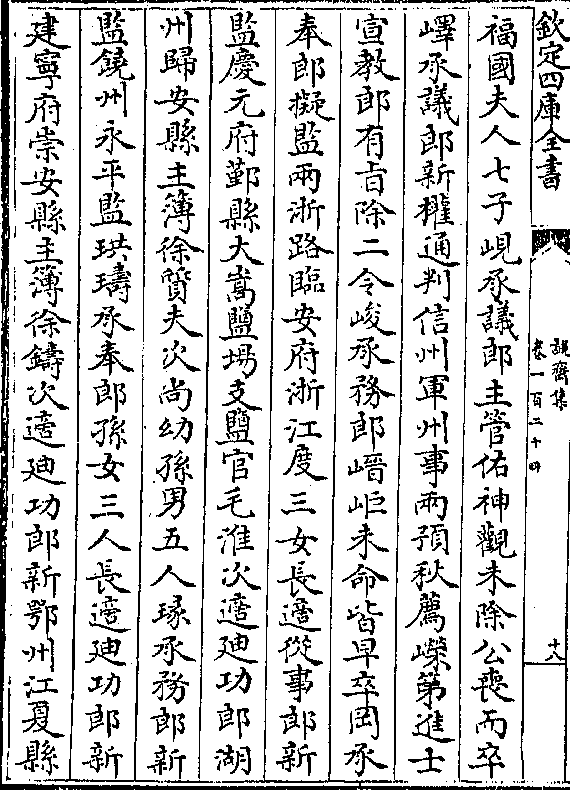 欽定四庫全書
誠齋集
卷一百二十四
十八
福國夫人七子峴承議郎主管佑神觀未除公喪而卒
嶧承議郎新權通判信州軍州事兩預秋薦嶸第進士
宣教郎有旨除二令峻承務郎㟴岠未命皆早卒岡承
奉郎擬監兩浙路臨安府浙江度三女長適從事郎新
監慶元府鄞縣大嵩鹽場支鹽官毛淮次適廸功郎湖
州歸安縣主簿徐贇夫次尚幼孫男五人瑑承務郎新
監饒州永平監珙璹承奉郎孫女三人長適廸功郎新
建寧府崇安縣主簿徐鑄次適廸功郎新鄂州江夏縣